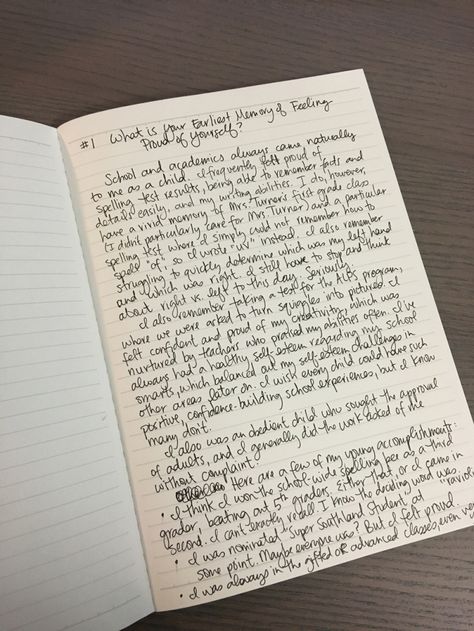 #1 What is Your Earliest Memory of Feeling
Proud of Yourself?
School and academics always came naturally
to me as a child. I frequently felt proud of
spelling test results, being able to remember facts and
details easily, and my writing abilities. I do, however,
have a vivid memory of Mrs. Turner's first grade class
(I didn't particularly care for Mrs. Turner) and a particular
spelling test where I simply could not remember how to
spell "of" so I wrote "uv" instead. I also remember
struggling to quickly determine which was my left hand
and which was right. I still have to stop and think
about right vs. left to this day. Seriously.
I also remember taking a test for the program,
where we were asked to turn squiggles into pictures. I
felt confident and proud of my creativity, which was
nurtured by teachers who praised my abilities often. I've
always had a healthy self-esteem regarding my school
smarts, which balanced out my self-esteem challenges in
other areas later on. I wish every child could have such
positive, confidence-building school experiences, but I know
many don't.
I also was an obedient child who sought the approval
of adults, and I generally did the work asked of me
without complaint.
Here are a few of my young accomplishments:
• I think I won the school-wide spelling bee as a third
grader, beating out 5th graders. Either that, or I came in
second. I can't exactly recall. I know the deciding word was "ravioli"
• I was nominated "Super Southland Student" at
some point. Maybe everyone was? But I felt proud
• I was always in the gifted OR advanced classes, even